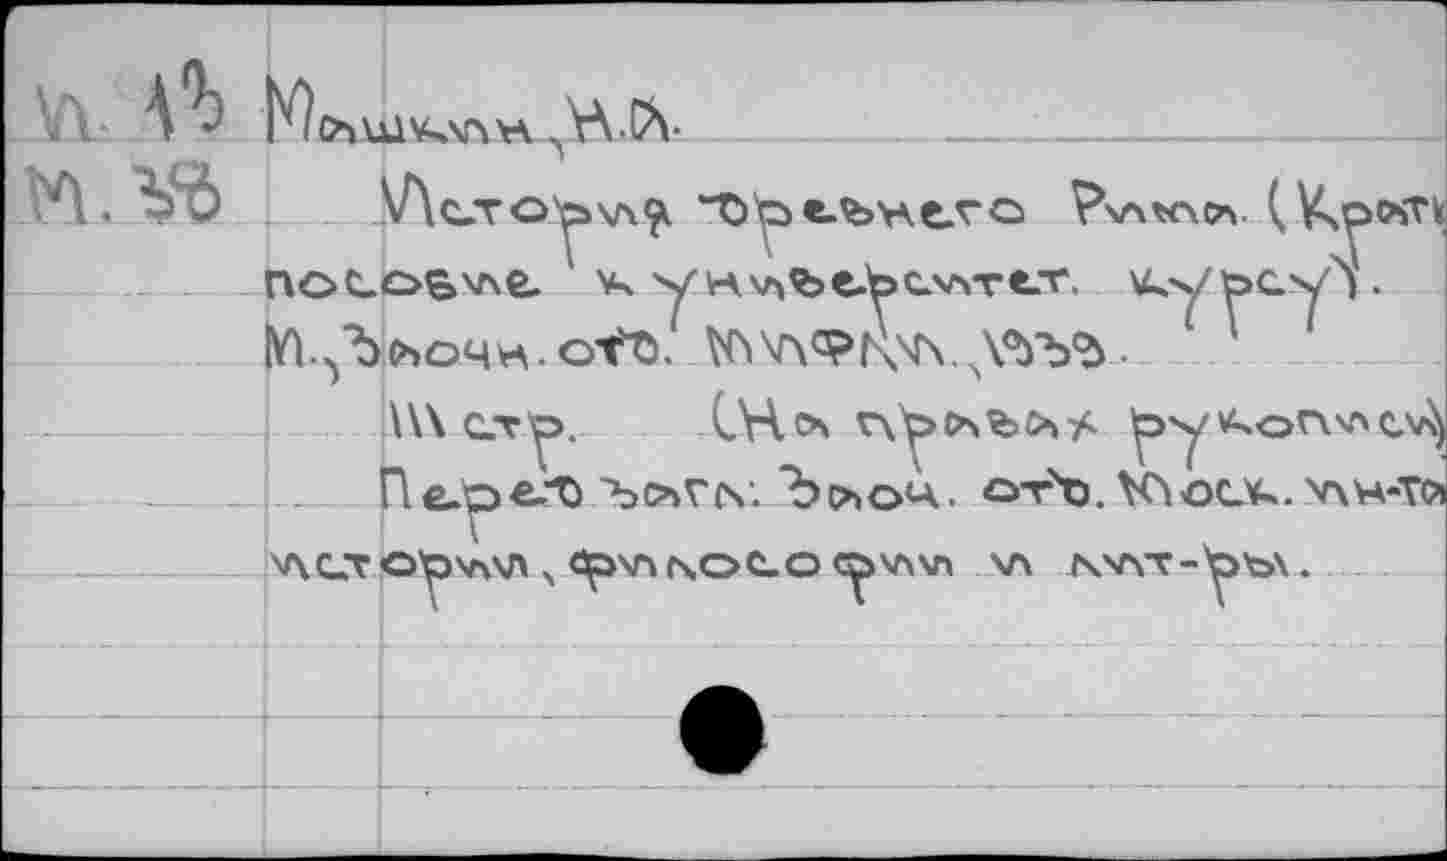 И. 13 Машкин, Н.А.
М. 38 История древнего Рима. (Кратк
пособие к университет. курсу).
М., Заочн. отд. МИФЛИ, 1933.
111 стр. (На правах рукописи)
Перед загл: Заоч. отд. Моск. ин-та
истории, философии и лит-ры.